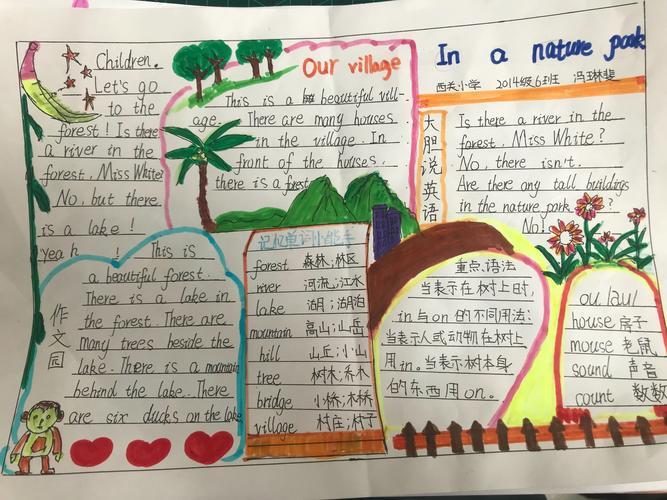 Children.
Let's go
to the
forest! Is there
a river in the
forest, Miss White?
No, but there
is a lake!
yeah !
Our village
This is a beautiful vill-
age. There are many houses
in the village. In
front of the houses,
there is a forest.
In a nature park
西关小学 2014级6班 冯琳斐
大胆说英语
Is there a river in the
forest, Miss White?
No, there isn't.
Are there any tall buildings
in the nature park ?
No!
作文园
This is
a beautiful forest.
There is a lake in
the forest. There are
many trees beside the
lake. There is a mountain
behind the lake. There
are six ducks on the lake
记忆单词小能手
forest 森林;林区
river 河流;江水
lake 湖;湖泊
mountain 高山;山岳
hill 山丘;小山
tree 树木;乔木
bridge 小桥;木桥
village 村庄;村子
重点语法
当表示在树上时,
in与on的不同用法:
当表示人或动物在树上
用in。当表示树本身
的东西用on。
ou /au/
house 房子
mouse 老鼠
sound 声音
count 数数